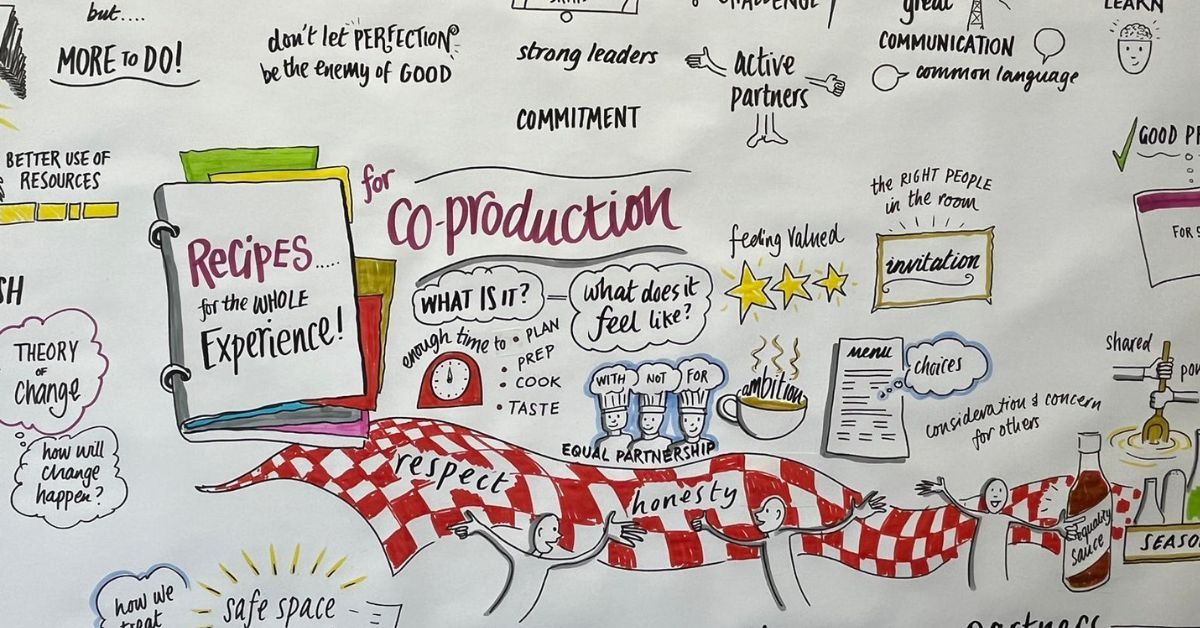 but....
MORE to DO!
don't let PERFECTION
be the enemy of GOOD
strong leaders
COMMITMENT
CHALLENGE
active
partners
great
COMMUNICATION
common language
LEARN
BETTER USE OF
RESOURCES
RECIPES.....
for the WHOLE
Experience!
for
co-production
WHAT IS IT?
=
what does it
feel like?
enough time to
• PLAN
PREP
• COOK
• TASTE
WITH
NOT
FOR
EQUAL PARTNERSHIP
feeling valued
ambition
the RIGHT PEOPLE
in the room
invitation
menu
choices
consideration & concern
for others
GOOD
FOR
shared
THEORY
OF
change
how will
change
happen?
respect
honesty
equality
sauce
how we
treat
safe space
partners